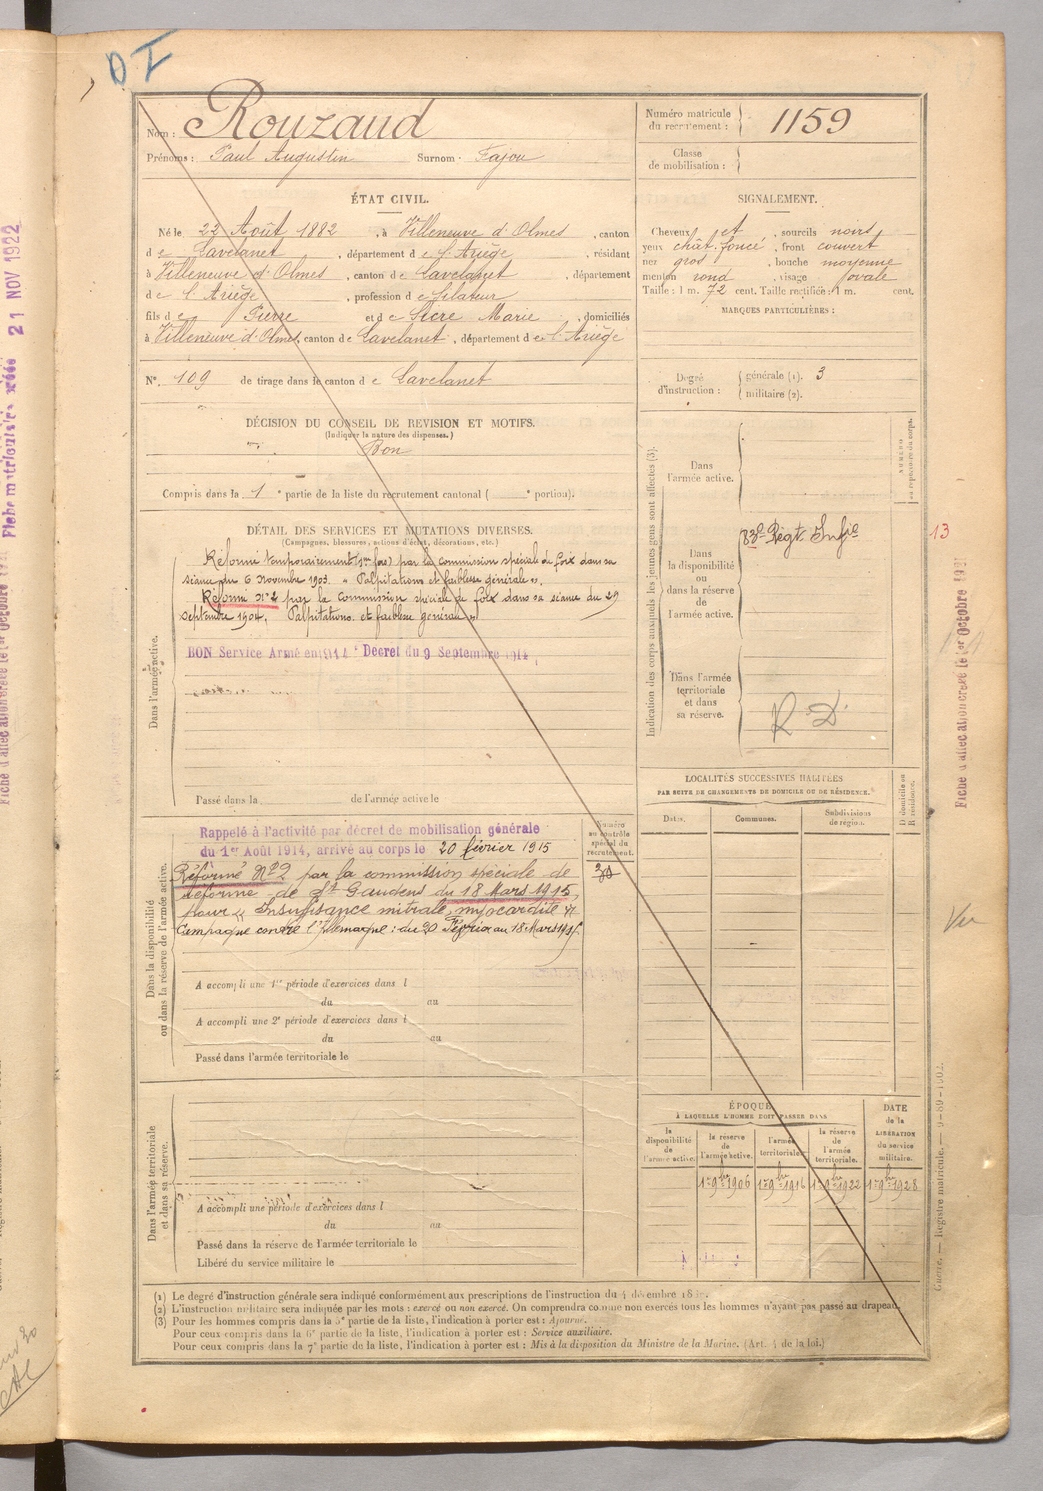 D I
Nom : Rouzaud
Prénoms : Paul Augustin Surnom : Fajou
Numéro matricule du recrutement : 1159
Classe de mobilisation :
ÉTAT CIVIL.
Né le 22 Août 1882, à Villeneuve d'Olmes, canton
de Lavelanet, département de l'Ariège, résidant
à Villeneuve d'Olmes, canton de Lavelanet, département
de l'Ariège, profession de filateur
fils de Pierre et de Sicre Marie, domiciliés
à Villeneuve d'Olmes, canton de Lavelanet, département de l'Ariège
N°. 109 de tirage dans le canton de Lavelanet
SIGNALEMENT.
Cheveux et, sourcils noirs
yeux chât. foncé, front couvert
nez gros, bouche moyenne
menton rond, visage ovale
Taille : 1 m. 72 cent. Taille rectifiée : 1 m. cent.
MARQUES PARTICULIÈRES :
Degré d'instruction : générale (1). 3
militaire (2).
DÉCISION DU CONSEIL DE REVISION ET MOTIFS.
(Indiquer la nature des dispenses.)
Bon
Compris dans la 1e partie de la liste du recrutement cantonal ( e portion).
DÉTAIL DES SERVICES ET MUTATIONS DIVERSES.
(Campagnes, blessures, actions d'éclat, décorations, etc.)
Dans l'armée active.
Réformé temporairement (1re fois) par la commission spéciale de Foix dans sa
séance du 6 novembre 1903. « Palpitations et faiblesse générale ».
Réformé N°2 par la commission spéciale de Foix dans sa séance du 29
Septembre 1904. Palpitations et faiblesse générale »
BON Service Armé en 1914 Décret du 9 Septembre 1914
Passé dans la de l'armée active le
Indication des corps auxquels les jeunes gens sont affectés (3).
NUMÉRO au répertoire du corps.
Dans l'armée active.
Dans la disponibilité ou dans la réserve de l'armée active.
83e Régt Infie
13
Dans l'armée territoriale et dans sa réserve.
R D
LOCALITÉS SUCCESSIVES HABITÉES
PAR SUITE DE CHANGEMENTS DE DOMICILE OU DE RÉSIDENCE.
Dates. Communes. Subdivisions de région. D domicile ou R résidence.
Dans la disponibilité ou dans la réserve de l'armée active.
Numéro au contrôle spécial du recrutement.
Rappelé à l'activité par décret de mobilisation générale
du 1er Août 1914, arrivé au corps le 20 février 1915
Réformé N°2 par la commission spéciale de
réforme de St Gaudens du 18 Mars 1915,
pour « Insuffisance mitrale, myocardite »
Campagne contre l'Allemagne : du 20 Février au 18 Mars 1915
A accompli une 1re période d'exercices dans l
du au
A accompli une 2e période d'exercices dans l
du au
Passé dans l'armée territoriale le
Vu
Dans l'armée territoriale et dans sa réserve.
A accompli une période d'exercices dans l
du au
Passé dans la réserve de l'armée territoriale le
Libéré du service militaire le
ÉPOQUE
À LAQUELLE L'HOMME DOIT PASSER DANS
la disponibilité de l'armée active. la réserve de l'armée active. l'armée territoriale. la réserve de l'armée territoriale.
DATE de la LIBÉRATION du service militaire.
1er 9bre 1906 1er 9bre 1916 1er 9bre 1922 1er 9bre 1928
(1) Le degré d'instruction générale sera indiqué conformément aux prescriptions de l'instruction du 4 décembre
(2) L'instruction militaire sera indiquée par les mots : exercé ou non exercé. On comprendra comme non exercés tous les hommes n'ayant pas passé au drapeau.
(3) Pour les hommes compris dans la 5e partie de la liste, l'indication à porter est : Ajourné.
Pour ceux compris dans la 6e partie de la liste, l'indication à porter est : Service auxiliaire.
Pour ceux compris dans la 7e partie de la liste, l'indication à porter est : Mis à la disposition du Ministre de la Marine. (Art. 4 de la loi.)
Guerre. — Registre matricule. — 9-89-1902.
Fiche matriculaire créée 21 NOV 1922